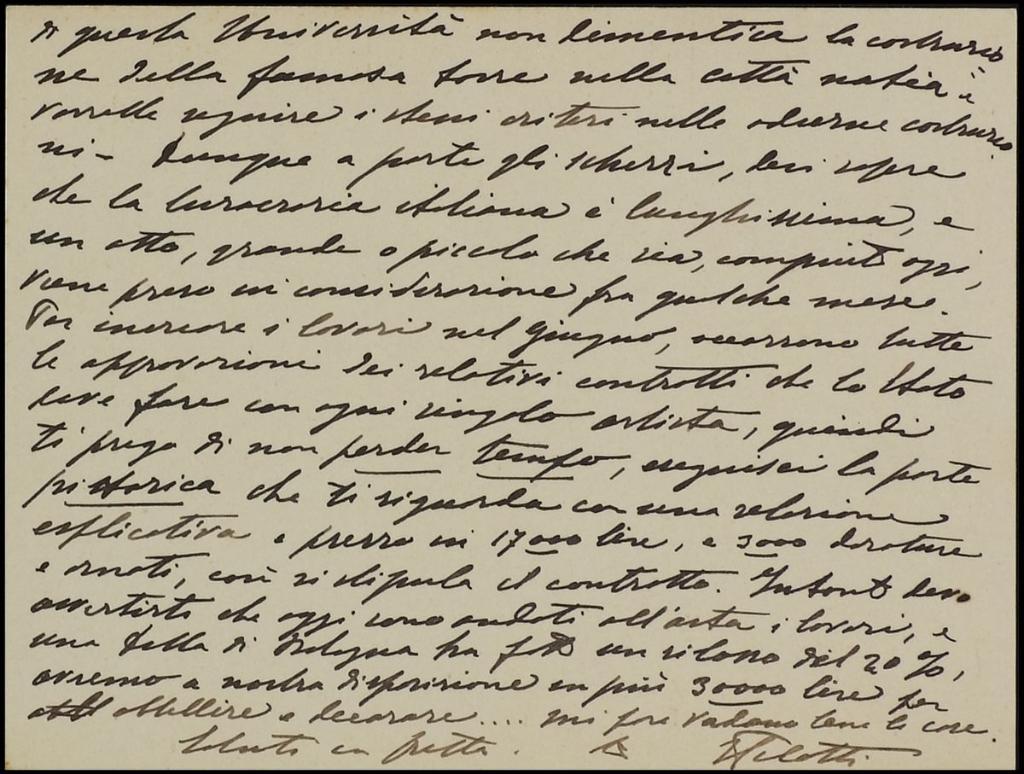 di questa Università non dimentica la costruzio
ne della famosa torre nella città natia e
vorrebbe seguire i stessi criteri nelle odierne costruzio
ni - Dunque a parte gli scherzi, devi sapere
che la burocrazia italiana è lunghissima, e
un atto, grande o piccolo che sia, compiuto oggi,
viene preso in considerazione fra qualche mese.
Per iniziare i lavori nel giugno, occorrono tutte
le approvazioni dei relativi contratti che lo Stato
deve fare con ogni singolo artista, quindi
ti prego di non perder tempo, eseguisci la parte
pittorica che ti riguarda con una relazione
esplicativa e prezzo in 17000 lire, e 3000 dorature
e ornati, così si stipula il contratto. Intanto devo
avvertirti che oggi sono andati all'asta i lavori, e
una ditta di Bologna ha fatto un rilasso del 20%,
avremo a nostra disposizione in più 30000 lire per
abbellire e decorare.... mi pare vadano bene le cose.
Saluti in fretta.